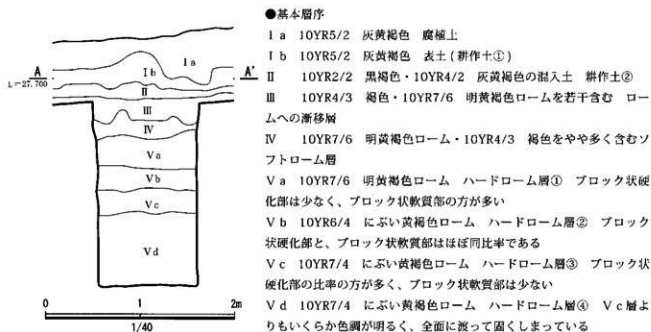 ●基本層序
Ⅰa 10YR5/2 灰黄褐色 腐植土
Ⅰb 10YR5/2 灰黄褐色 表土(耕作土①)
Ⅱ 10YR2/2 黒褐色・10YR4/2 灰黄褐色の混入土 耕作土②
Ⅲ 10YR4/3 褐色・10YR7/6 明黄褐色ロームを若干含む ロー
ムへの漸移層
Ⅳ 10YR7/6 明黄褐色ローム・10YR4/3 褐色をやや多く含むソ
フトローム層
Ⅴa 10YR7/6 明黄褐色ローム ハードローム層① ブロック状硬
化部は少なく、ブロック状軟質部の方が多い
Ⅴb 10YR6/4 にぶい黄褐色ローム ハードローム層② ブロック
状硬化部と、ブロック状軟質部はほぼ同比率である
Ⅴc 10YR7/4 にぶい黄褐色ローム ハードローム層③ ブロック状
硬化部の比率の方が多く、ブロック状軟質部は少ない
Ⅴd 10YR7/4 にぶい黄褐色ローム ハードローム層④ Ⅴc層よ
りもいくらか色調が明るく、全面に渡って固くしまっている
A
L=27.700
A'
Ⅰa
Ⅰb
Ⅱ
Ⅲ
Ⅳ
Ⅴa
Ⅴb
Ⅴc
Ⅴd
0 1 2m
1/40